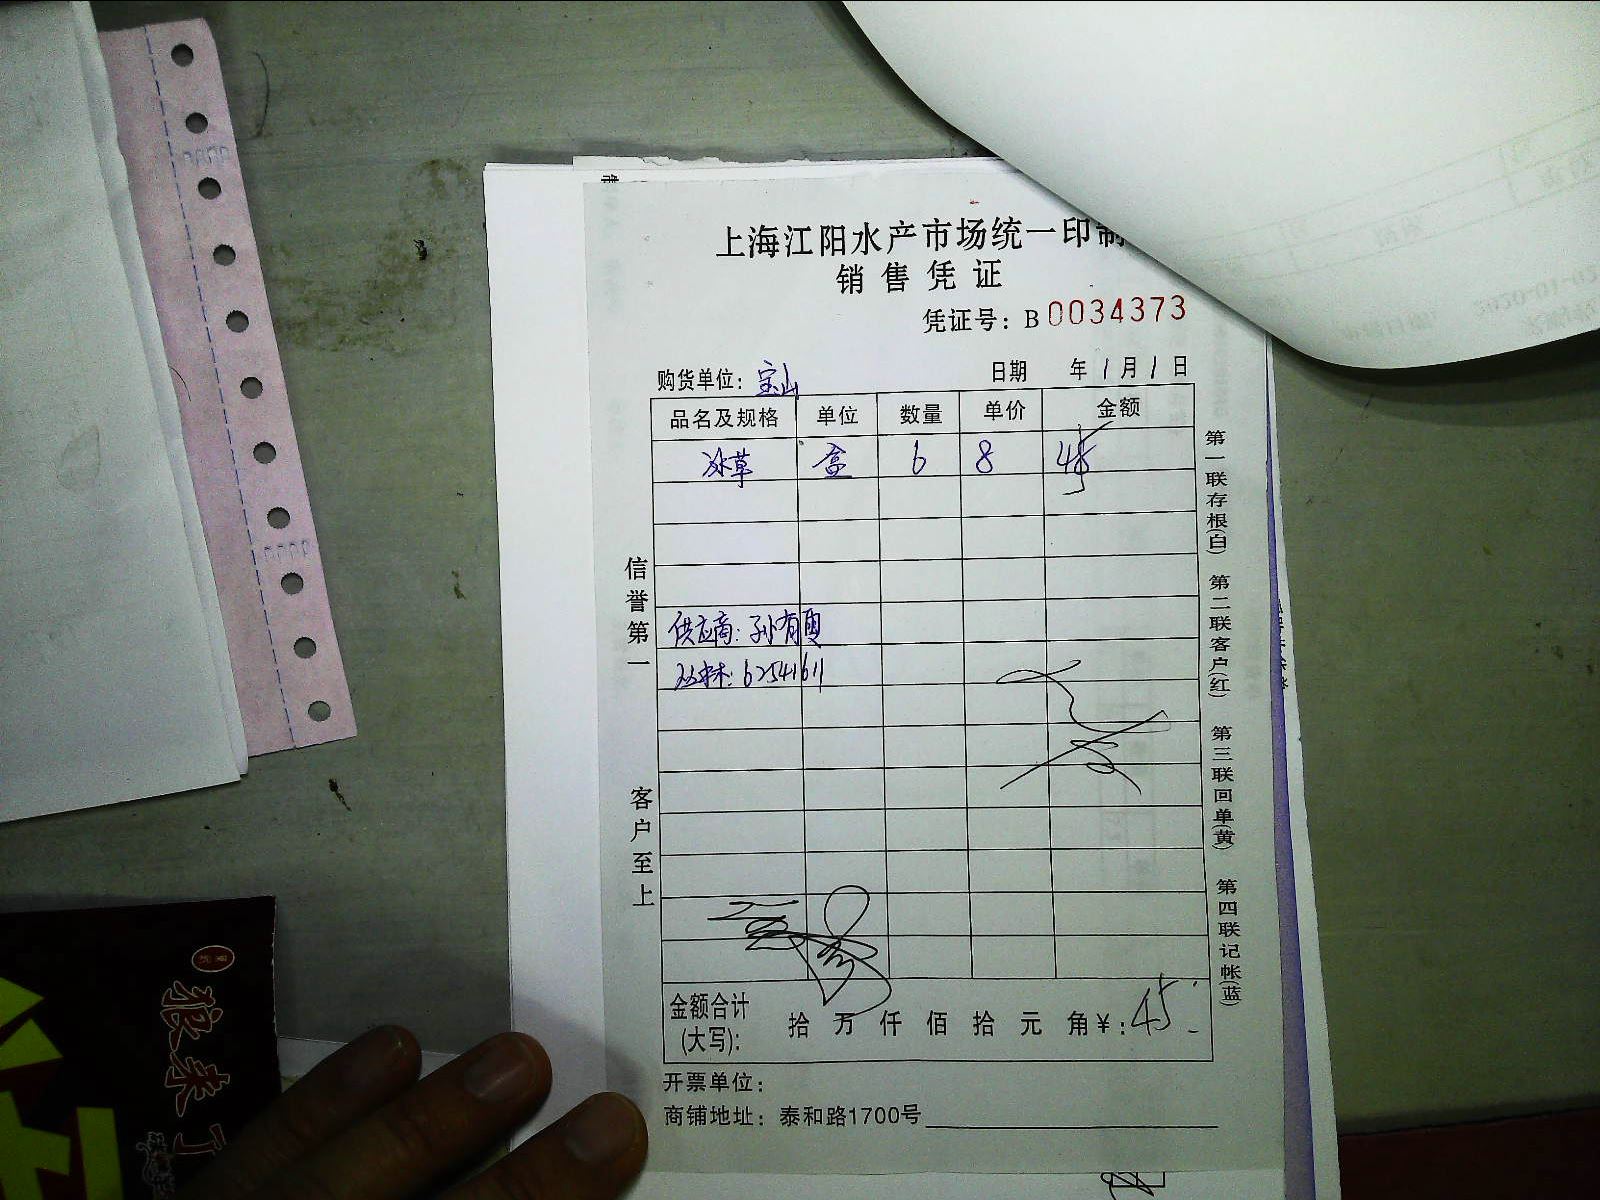 上海江阳水产市场统一印制
销售凭证
凭证号：B 0034373
购货单位：宝山 日期 年 1 月 1 日
品名及规格 单位 数量 单价 金额
冰草 盒 6 8
供应商：孙有
6254161
信誉第一
客户至上
第一联存根(白) 第二联客户(红) 第三联回单(黄) 第四联记帐(蓝)
金额合计(大写)： 拾 万 仟 佰 拾 元 角 ¥：45
开票单位：
商铺地址：泰和路1700号
狼来了